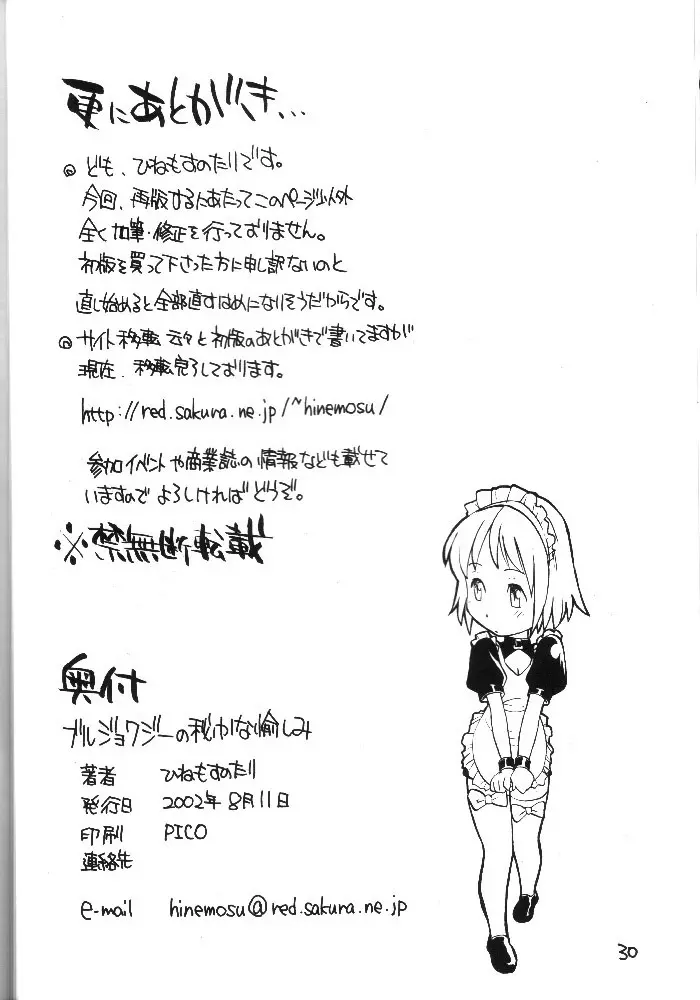 更にあとがき...
◎ ども、ひねもすのたりです。
今回、再版するにあたってこのページ以外
全く加筆・修正を行っておりません。
初版を買って下さった方に申し訳ないのと
直し始めると全部直すはめになりそうだからです。
◎ サイト移転云々と初版のあとがきで書いてますが
現在、移転完了しております。
http://red.sakura.ne.jp/~hinemosu/
参加イベントや商業誌の情報なども載せて
いますのでよろしければどうぞ。
※禁無断転載
奥付
ブルジョワジーの秘かな愉しみ
著者 ひねもすのたり
発行日 2002年8月11日
印刷 PICO
連絡先
e-mail hinemosu@red.sakura.ne.jp
30